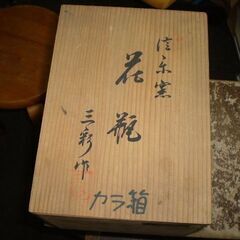 信楽窯
花瓶
三彩作
カラ箱